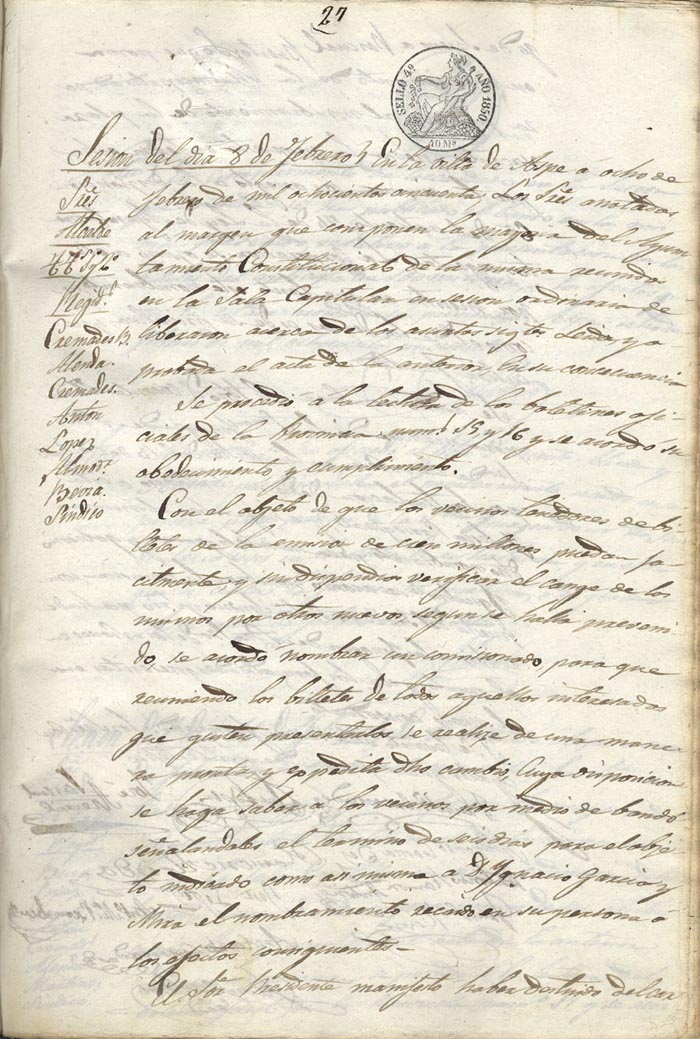 27
SELLO 4º AÑO 1850.
40 Ms
Sesion del dia 8 de Febrero} En la villa de Aspe a ocho de
febrero de mil ochocientos cincuenta, Los Sres anotados
al margen que componen la mayoria del Ayun
tamiento Constitucional de la misma reunidos
en la Sala Capitular en sesion ordinaria de
liberaron acerca de los asuntos sigtes Leida y a
probada el acta de la anterior, En su consecuencia
Se procedió a la lectura de los boletines ofi
ciales de la Provincia nums 15 y 16 y se acordó su
obedecimiento y cumplimiento.
Con el objeto de que los vecinos tenedores de bi
lletes de la emision de cien millones puedan fa
cilmente y sin dispendio verificar el cange de los
mismos por otros nuevos, segun se halla preveni
do, se acordo nombrar un comisionado para que
reuniendo los billetes de todos aquellos interesados
que gusten presentarlos, se realize de una mane
ra pronta y expedita dho cambio, Cuya disposicion
se haga saber a los vecinos por medio de bando
señalandoles el termino de seis dias para el obje
to indicado como asi mismo a Dn Ygnacio Garcia y
Mira el nombramiento recaido en su persona a
los efectos consiguientes.
El Sor Presidente manifesto haber destituido del car
Sres
Alcalde
Regids
Cremades B.
Alenda.
Cremades.
Anton
Lopez
Almodr
Botia.
Sindico